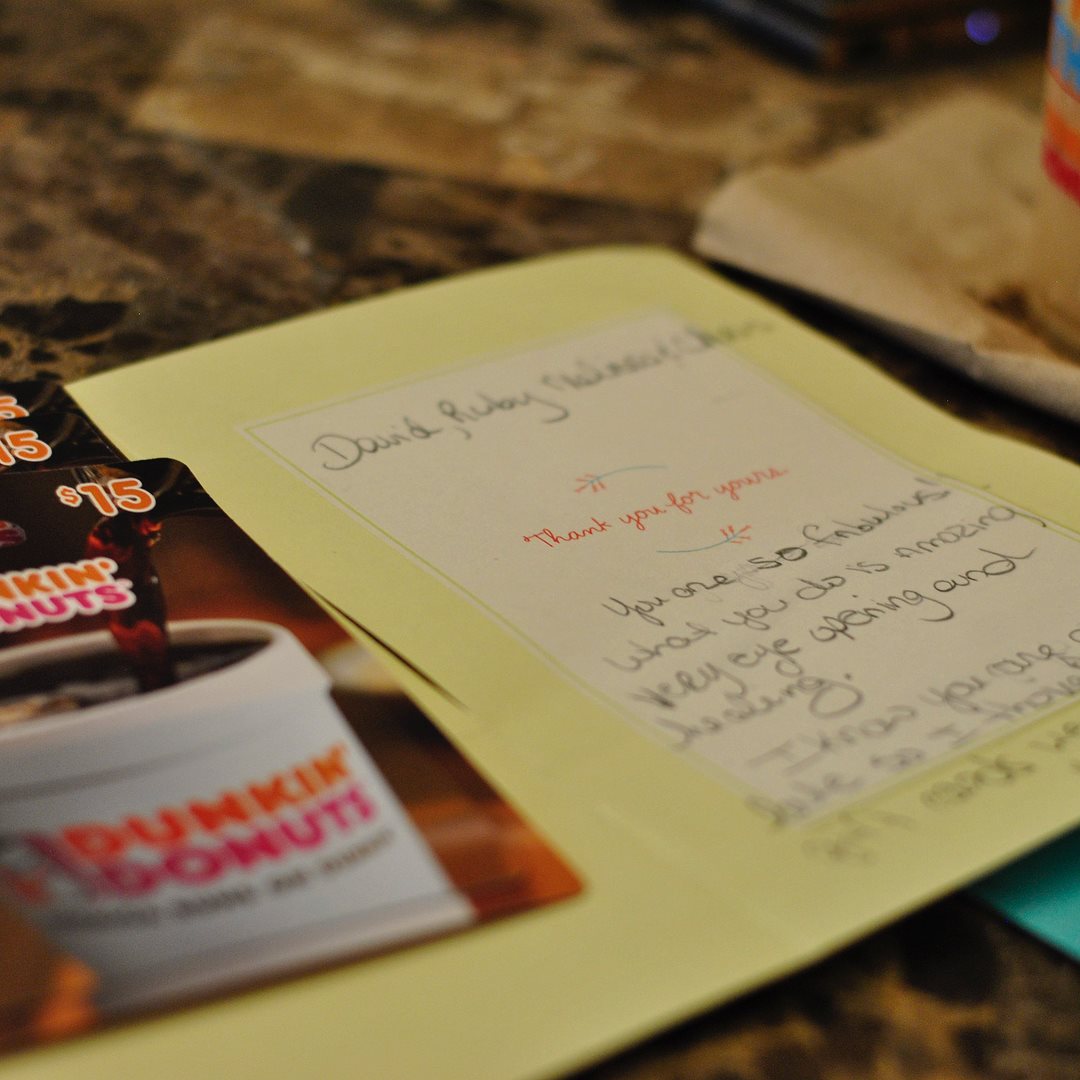 5
15
$15
NKIN'
NUTS
DUNKIN'
DONUTS
David, Ruby
Thank you for yours
You are so fabulous!
what you do is amazing
very eye opening and
healing.
I know you are
late so I
gift cards